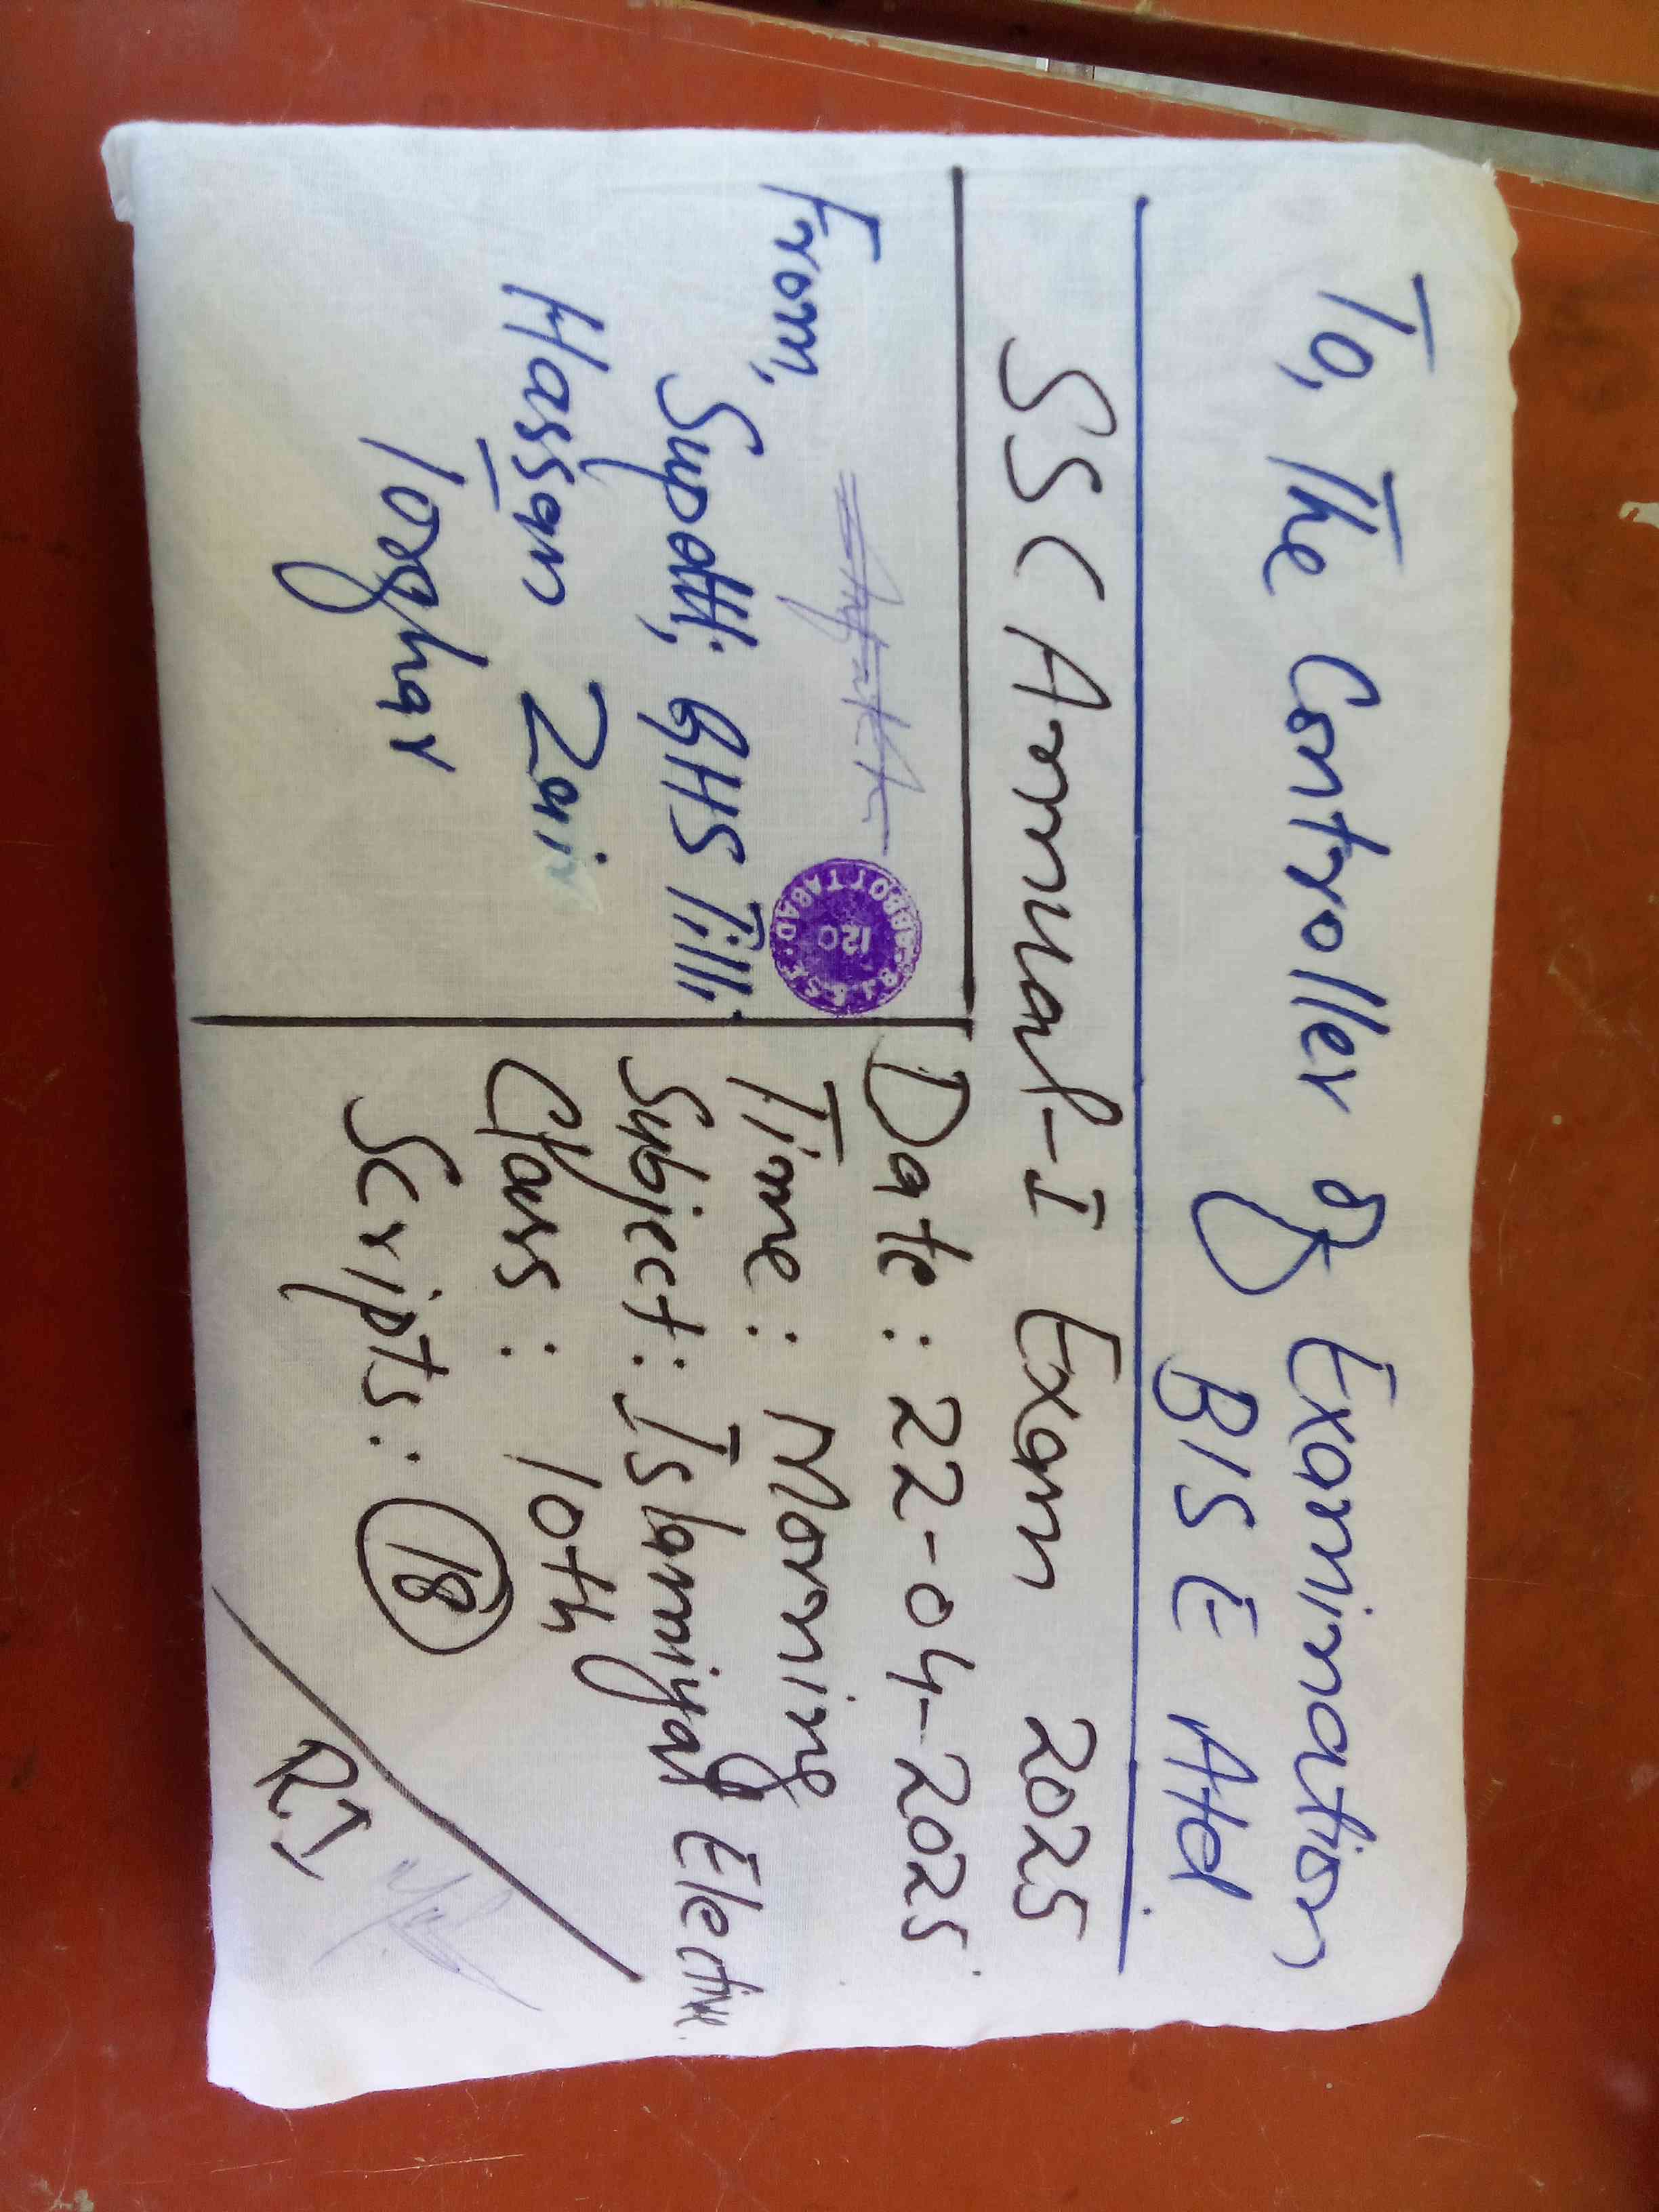 To, The Controller of Examination
BISE Atd
SSC Annual-I Exam 2025
From,
Supdtt; GHS Tilli
Hassan Zair
Torghar
B.I.&S.E. ABBOTTABAD
120
Date: 22-04-2025
Time: Morning
Subject: Islamiyat Elective
Class: 10th
Scripts: 18